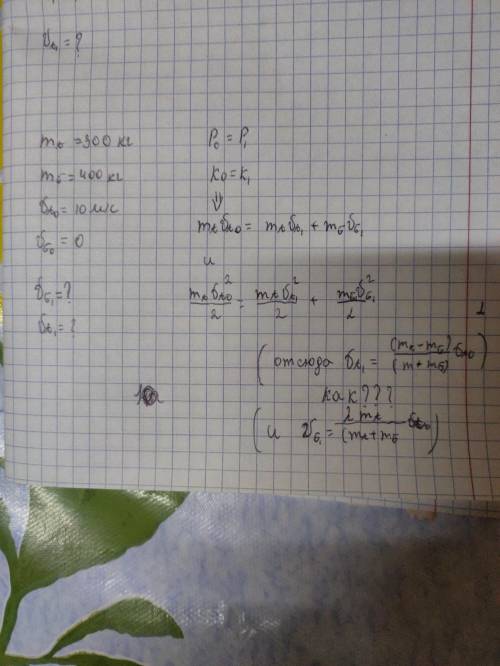 v_{A_1} = ?
m_A = 300 кг
m_Б = 400 кг
v_{A_0} = 10 м/с
v_{Б_0} = 0
v_{Б_1} = ?
v_{A_1} = ?
P_0 = P_1
K_0 = K_1
⇓
m_A v_{A_0} = m_A v_{A_1} + m_Б v_{Б_1}
и
\frac{m_A v_{A_0}^2}{2} = \frac{m_A v_{A_1}^2}{2} + \frac{m_Б v_{Б_1}^2}{2}
(отсюда v_{A_1} = \frac{(m_A - m_Б)}{(m + m_Б)} v_{A_0})
как???
(и v_{Б_1} = \frac{2 m_A}{(m_A + m_Б} v_{A_0})